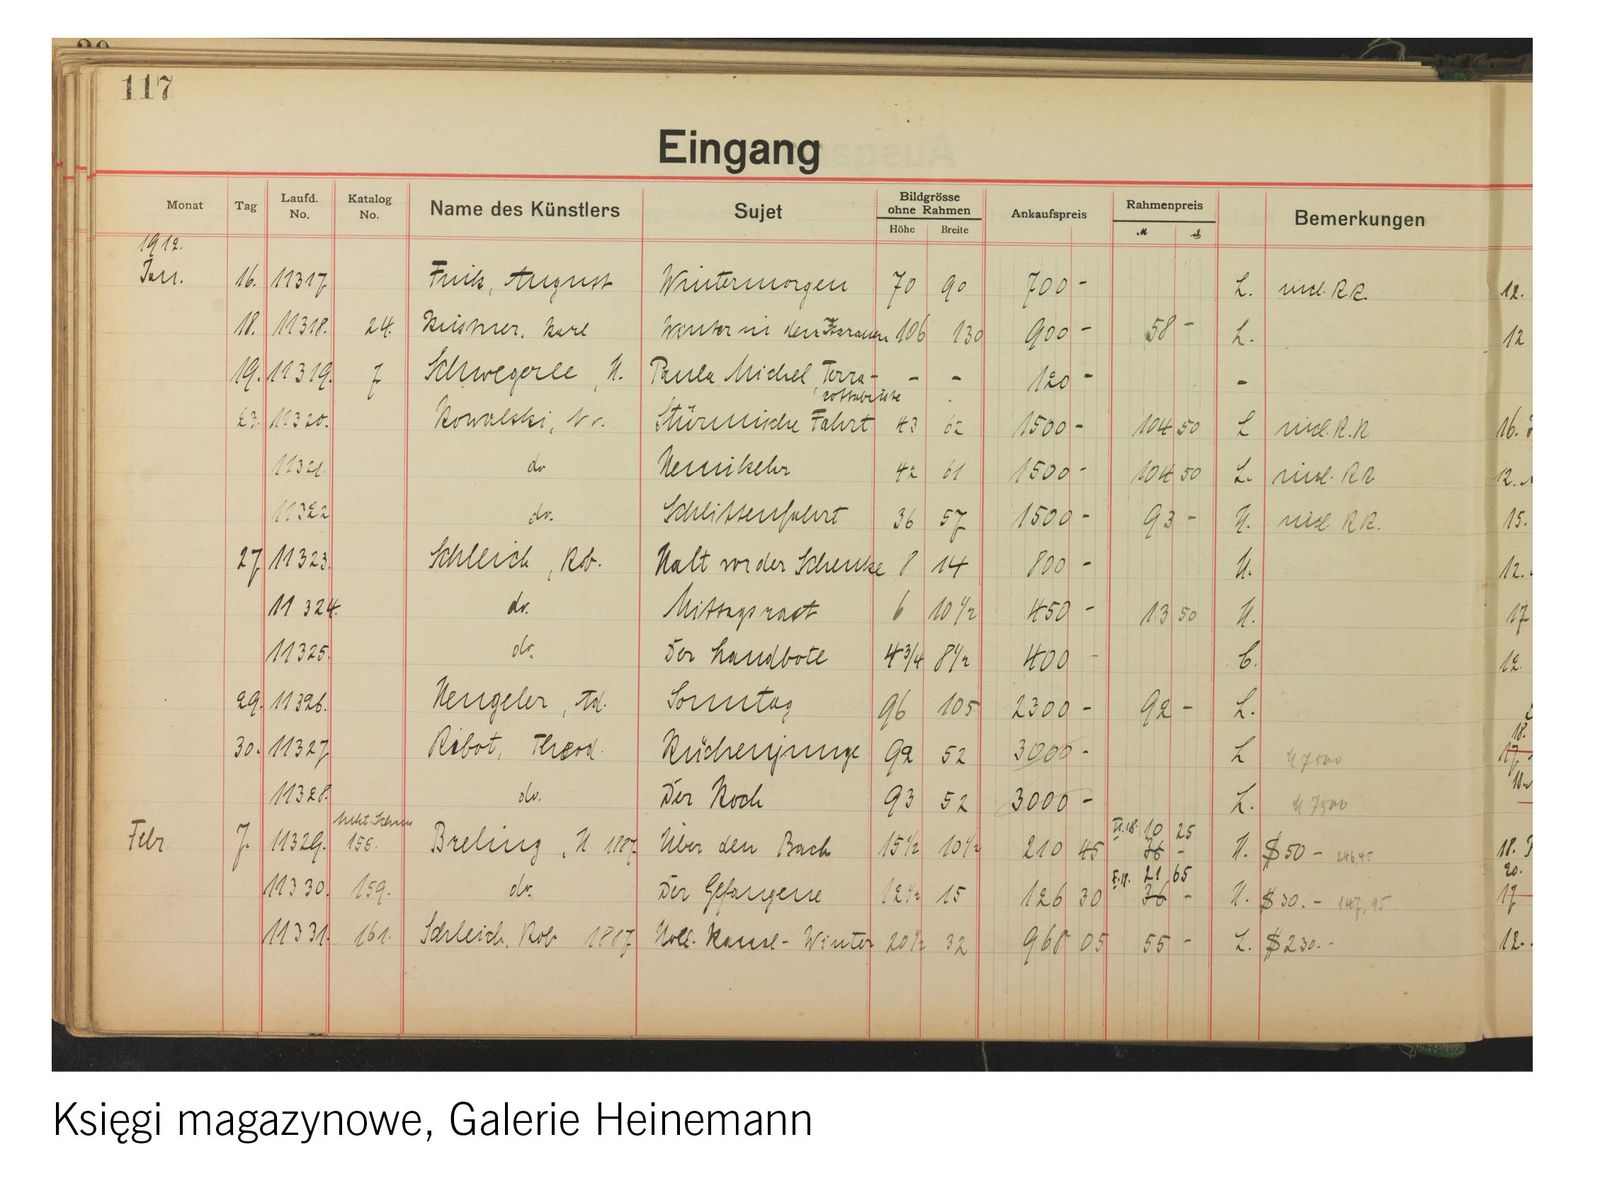 117
Eingang
Monat Tag Laufd. No. Katalog No. Name des Künstlers Sujet Bildgrösse ohne Rahmen Höhe Breite Ankaufspreis Rahmenpreis M Bemerkungen
1912.
Jan. 16. 11317 August Wintermorgen 70 90 700 - L. incl. RR. 12.
18. 11318. 24. Küstner, Karl Winter in den 106 130 900 - 58 - L. 12
19. 11319. 7 Schwegerle, H. Paula Michel, Terra- - - 120 - -
cottabüste
27. 11320. Kowalski, v. Stürmische Fahrt 43 62 1500 - 104 50 L incl. R.R 16.
11321. do Heimkehr 42 61 1500 - 104 50 L. incl. RR 12.
11322 do. Schlittenfahrt 36 57 1500 - 93 - H. incl. RR. 15.
27 11323. Schleich, Rob. Halt vor der Schenke 8 14 800 - H. 12.
11324. do. Mittagsrast 6 10 1/2 450 - 13 50 H. 17
11325. do. Der Landbote 4 3/4 8 1/2 400 - C. 12.
29. 11326. Hengeler, Ad. Sonntag 96 105 2300 - 92 - L.
18.
30. 11327. Ribot, Theod. Küchenjunge 92 52 3000 - L 7500 17.
11328. do. Der Koch 93 52 3000 - L. 7500
Febr 7. 11329. 156. Breling, H 1887 Über den Bach 15 1/2 10 1/2 210 45 10 25 36 - H. $50 - 246,45 18.
20.
11330. 159. do. Der Gefangene 12 1/2 15 126 30 21 65 36 - H. $30. - 147,95 17
11331. 161. Schleich, Rob 1887 Holl. Kanal - Winter 20 1/2 32 968 05 55 - L. $230. - 12.
Księgi magazynowe, Galerie Heinemann